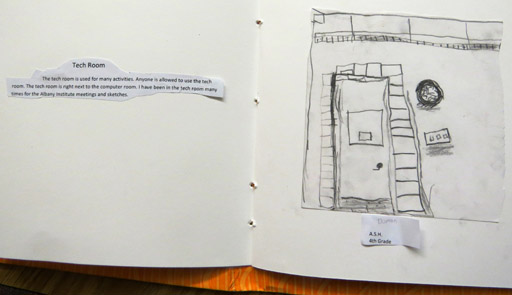 Tech Room
The tech room is used for many activities. Anyone is allowed to use the tech
room. The tech room is right next to the computer room. I have been in the tech room many
times for the Albany Institute meetings and sketches.
A.S.H.
4th Grade